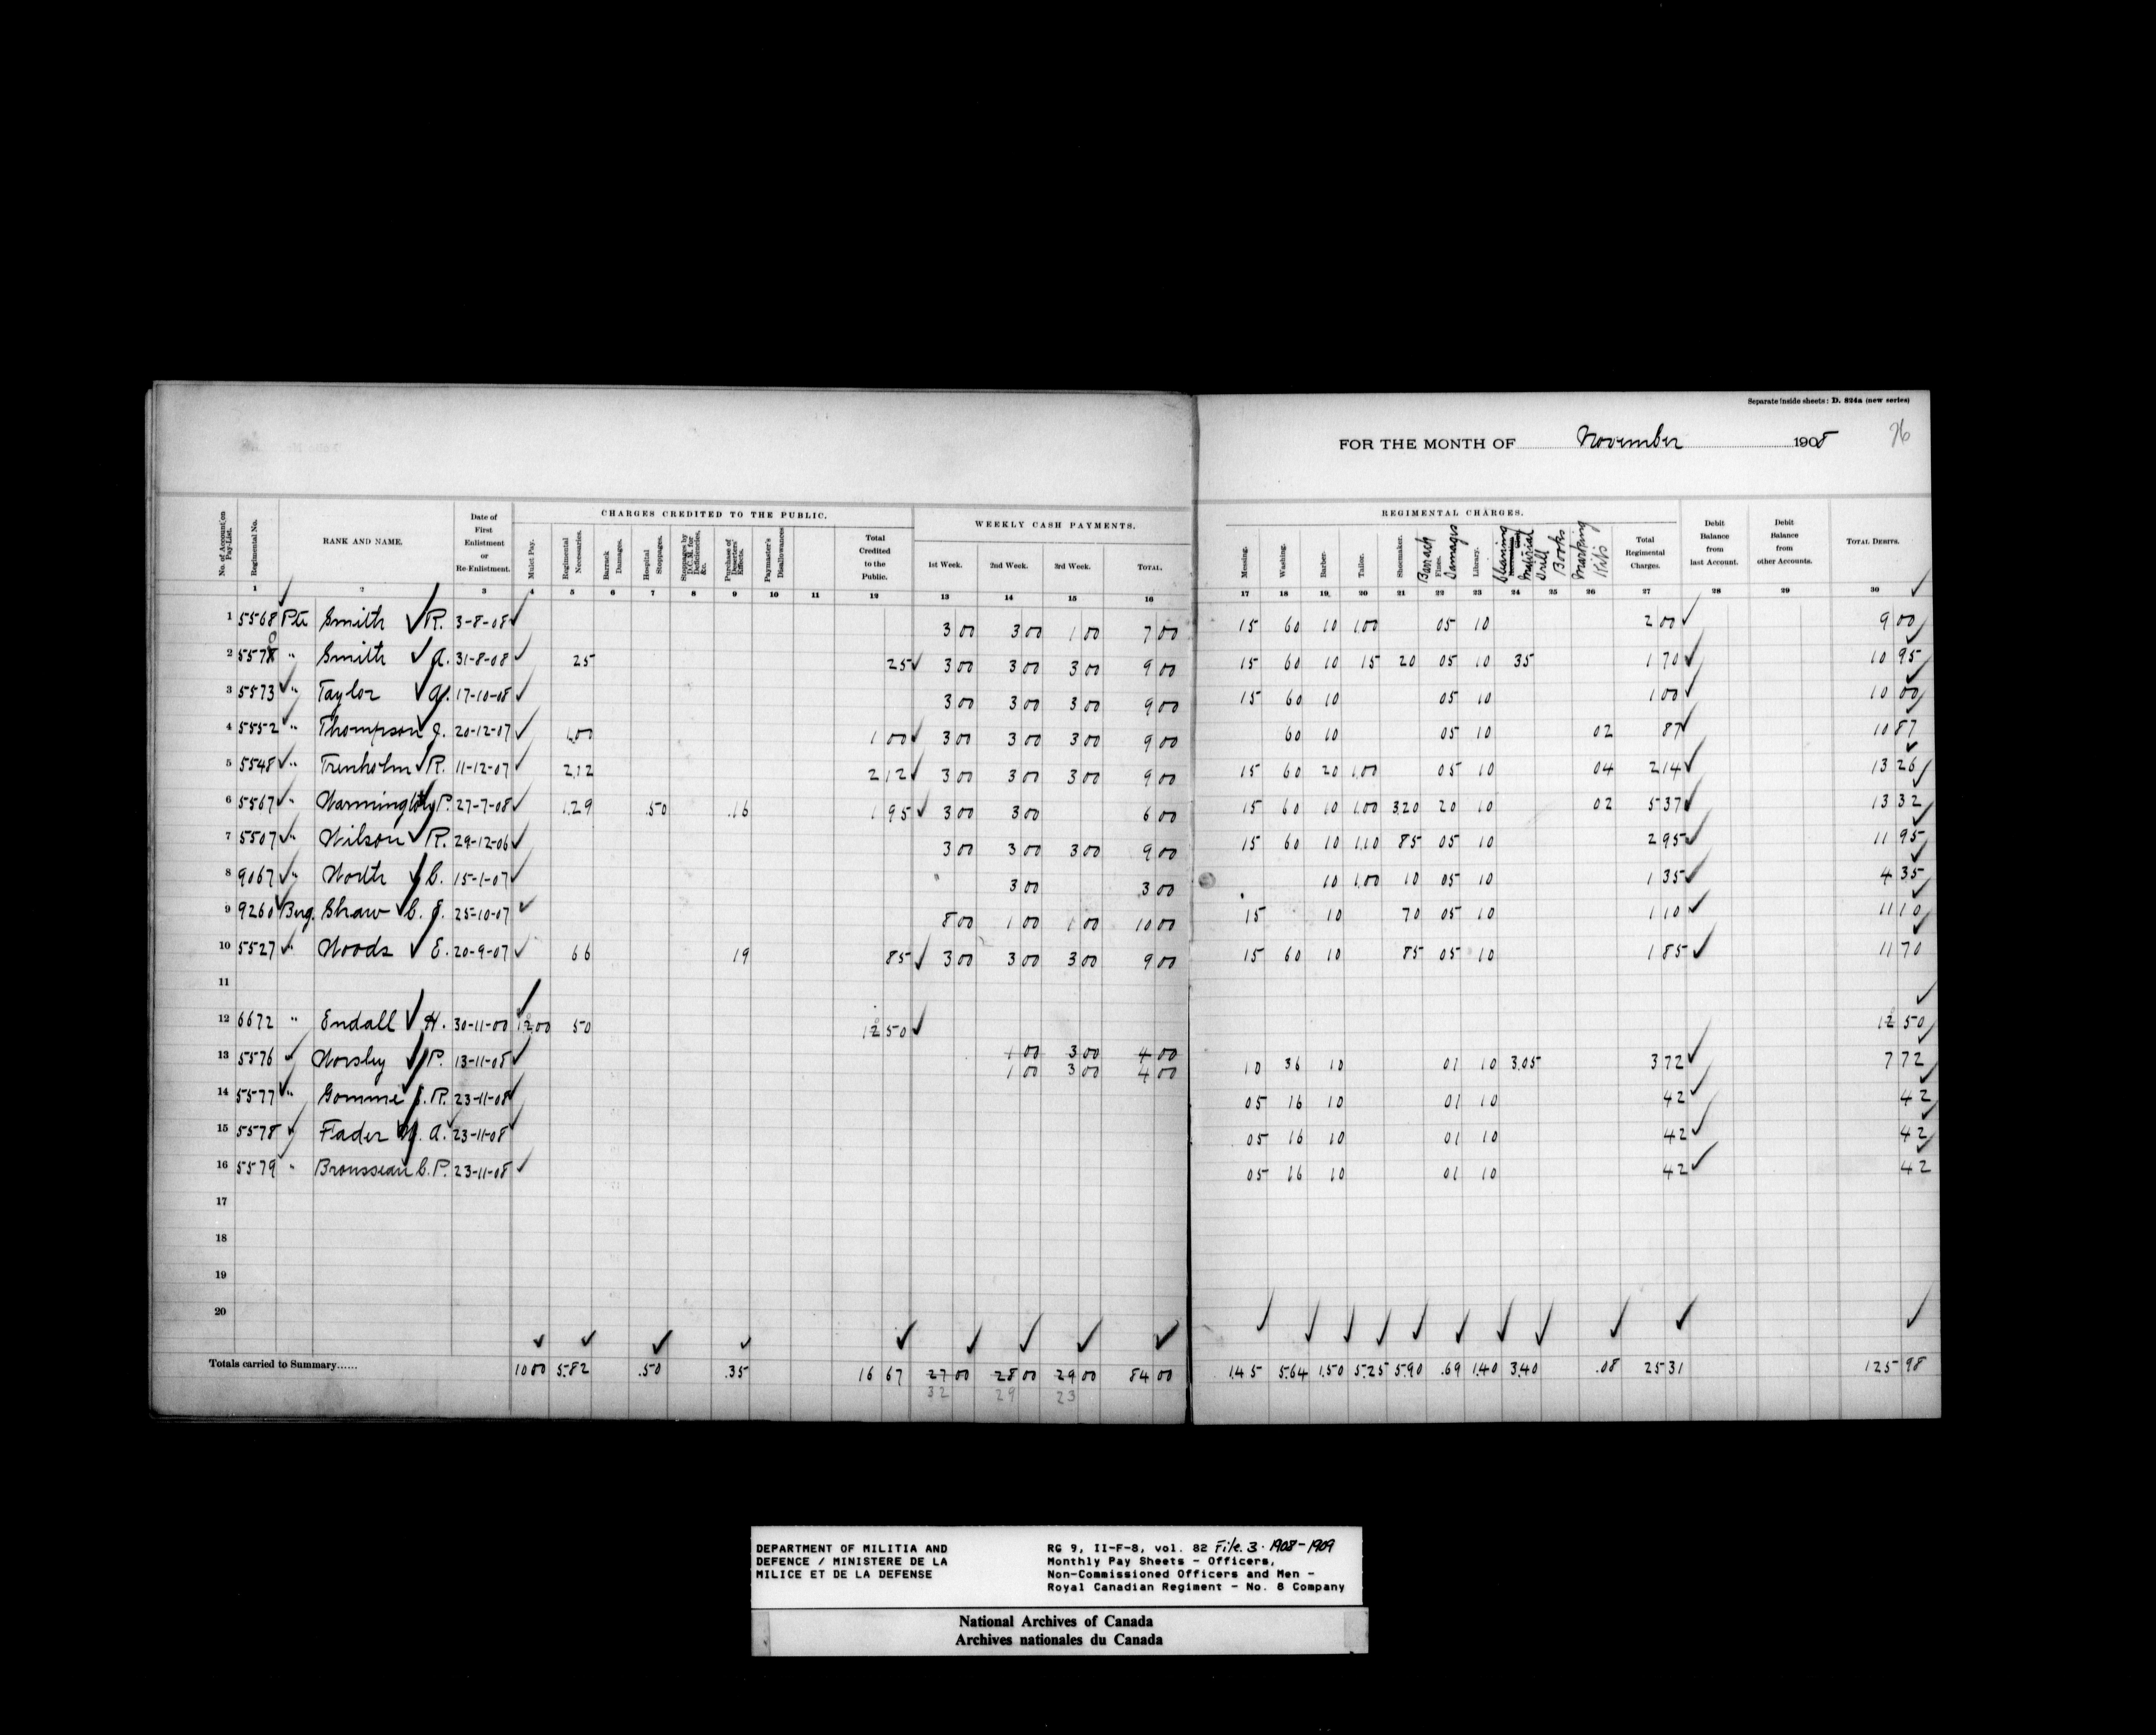 Separate inside sheets: D. 824a (new series)
FOR THE MONTH OF November 1908 76
No. of Account on Pay-List.
Regimental No.
RANK AND NAME.
Date of First Enlistment or Re-Enlistment.
CHARGES CREDITED TO THE PUBLIC.
Mulct Pay.
Regimental Necessaries.
Barrack Damages.
Hospital Stoppages.
Stoppages by D.C.M. for Deficiencies, &c.
Purchase of Deserters' Effects.
Paymaster's Disallowances
Total Credited to the Public.
WEEKLY CASH PAYMENTS.
1st Week.
2nd Week.
3rd Week.
TOTAL.
REGIMENTAL CHARGES.
Messing.
Washing.
Barber.
Tailor.
Shoemaker.
Barrack Fines. Damages
Library.
Cleaning Material
Drill Books
Marking Kits
Total Regimental Charges.
Debit Balance from last Account.
Debit Balance from other Accounts.
TOTAL DEBITS.
1 2 3 4 5 6 7 8 9 10 11 12 13 14 15 16 17 18 19 20 21 22 23 24 25 26 27 28 29 30
1 5568 Pte Smith R. 3-8-08 3 00 3 00 1 00 7 00 15 60 10 1.00 05 10 2 00 9 00
2 5570 " Smith A. 31-8-08 25 25 3 00 3 00 3 00 9 00 15 60 10 15 20 05 10 35 1 70 10 95
3 5573 " Taylor 17-10-08 3 00 3 00 3 00 9 00 15 60 10 05 10 1 00 10 00
4 5552 " Thompson J. 20-12-07 1.00 1 00 3 00 3 00 3 00 9 00 60 10 05 10 02 87 10 87
5 5548 " Trenholm R. 11-12-07 2.12 2 12 3 00 3 00 3 00 9 00 15 60 20 1.00 05 10 04 2 14 13 26
6 5567 " Warmington P. 27-7-08 1.29 .50 .16 1 95 3 00 3 00 6 00 15 60 10 1.00 3.20 20 10 02 5 37 13 32
7 5507 " Wilson R. 29-12-06 3 00 3 00 3 00 9 00 15 60 10 1.10 85 05 10 2 95 11 95
8 9067 " Worth C. 15-1-07 3 00 3 00 10 1.00 10 05 10 1 35 4 35
9 9260 Bug. Shaw C. J. 25-10-07 8 00 1 00 1 00 10 00 15 10 70 05 10 1 10 11 10
10 5527 " Woods E. 20-9-07 66 19 85 3 00 3 00 3 00 9 00 15 60 10 85 05 10 1 85 11 70
11
12 6672 " Endall H. 30-11-00 10 00 50 10 50 10 50
13 5576 Worsley P. 13-11-08 1 00 3 00 4 00 10 36 10 01 10 3.05 3 72 7 72
1 00 3 00 4 00
14 5577 " Gomme J. R. 23-11-08 05 16 10 01 10 42 42
15 5578 Fader W. A. 23-11-08 05 16 10 01 10 42 42
16 5579 " Brousseau C. P. 23-11-08 05 16 10 01 10 42 42
17
18
19
20
Totals carried to Summary...... 10 00 5.82 .50 .35 16 67 27 00 28 00 29 00 84 00 1.45 5.64 1.50 5.25 5.90 .69 1.40 3.40 .08 25 31 125 98
32 29 23
DEPARTMENT OF MILITIA AND
DEFENCE / MINISTERE DE LA
MILICE ET DE LA DEFENSE
RG 9, II-F-8, vol. 82 File. 3. 1908-1909
Monthly Pay Sheets - Officers,
Non-Commissioned Officers and Men -
Royal Canadian Regiment - No. 8 Company
National Archives of Canada
Archives nationales du Canada